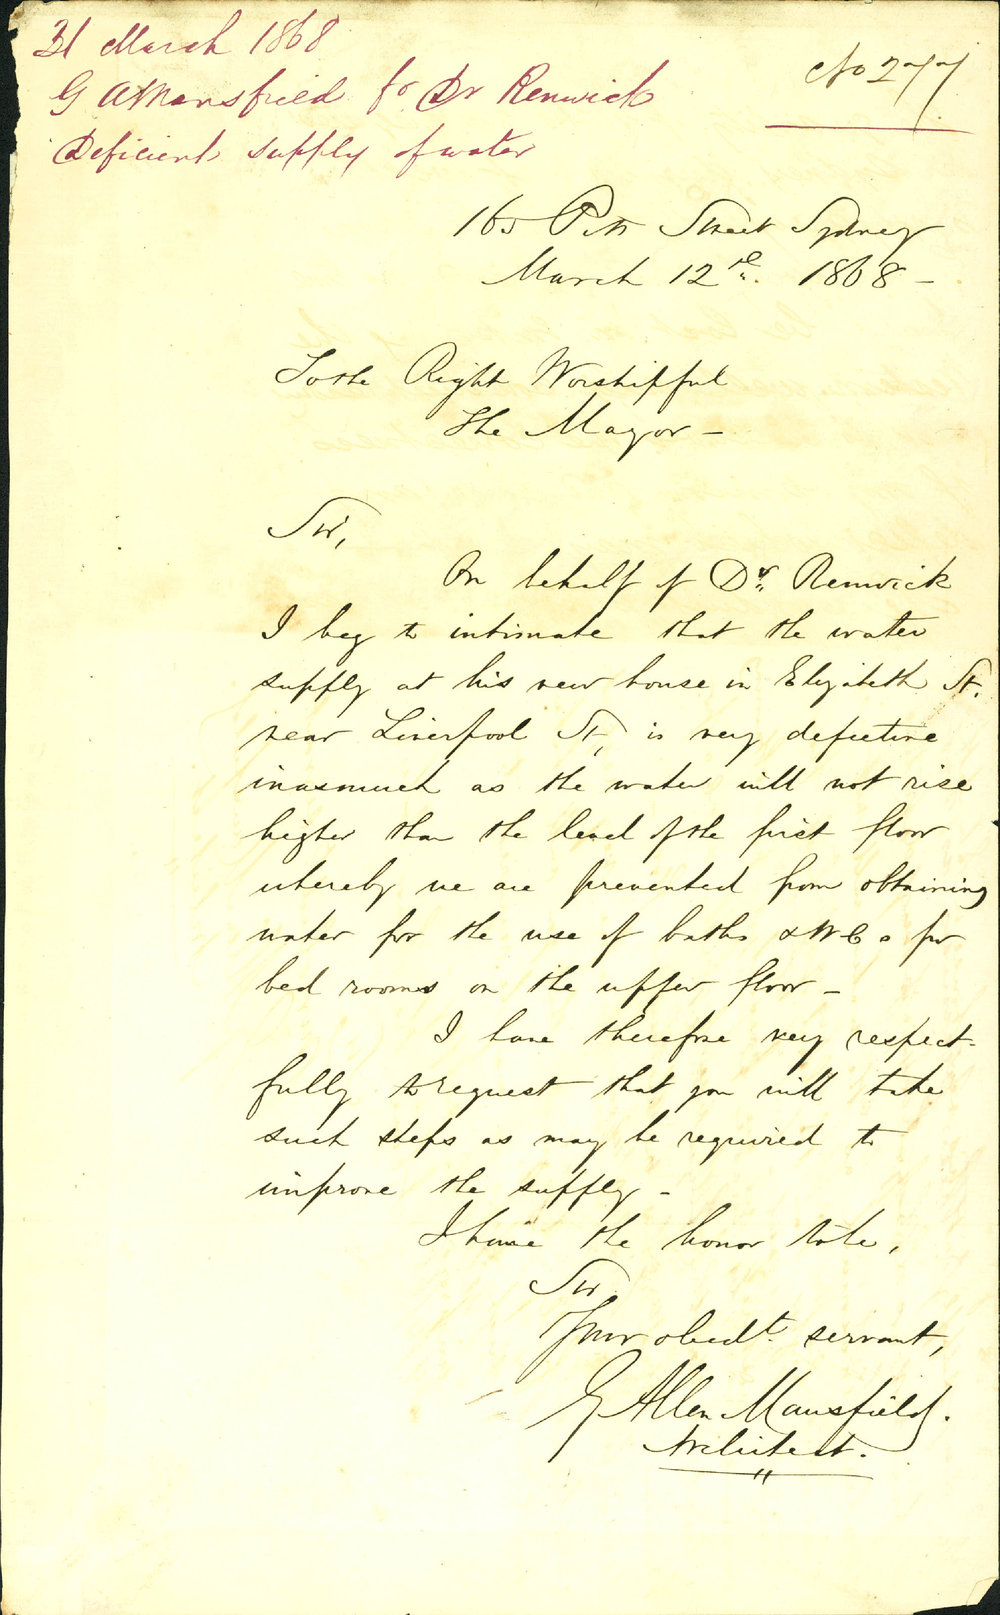 31 March 1868
G A Mansfield fo Dr Renwick
Deficient supply of water
No 277
165 Pitt Street Sydney
March 12th. 1868 -
To the Right Worshipful
The Mayor -
Sir,
On behalf of Dr. Renwick
I beg to intimate that the water
supply at his new house in Elizabeth St.
near Liverpool St, is very defective
inasmuch as the water will not rise
higher than the level of the first floor
whereby we are prevented from obtaining
water for the use of baths & W C s for
bed rooms on the upper floor -
I have therefore very respect-
fully to request that you will take
such steps as may be required to
improve the supply -
I have the honor to be,
Sir
Your obedt. servant,
G Allen Mansfield.
Architect.